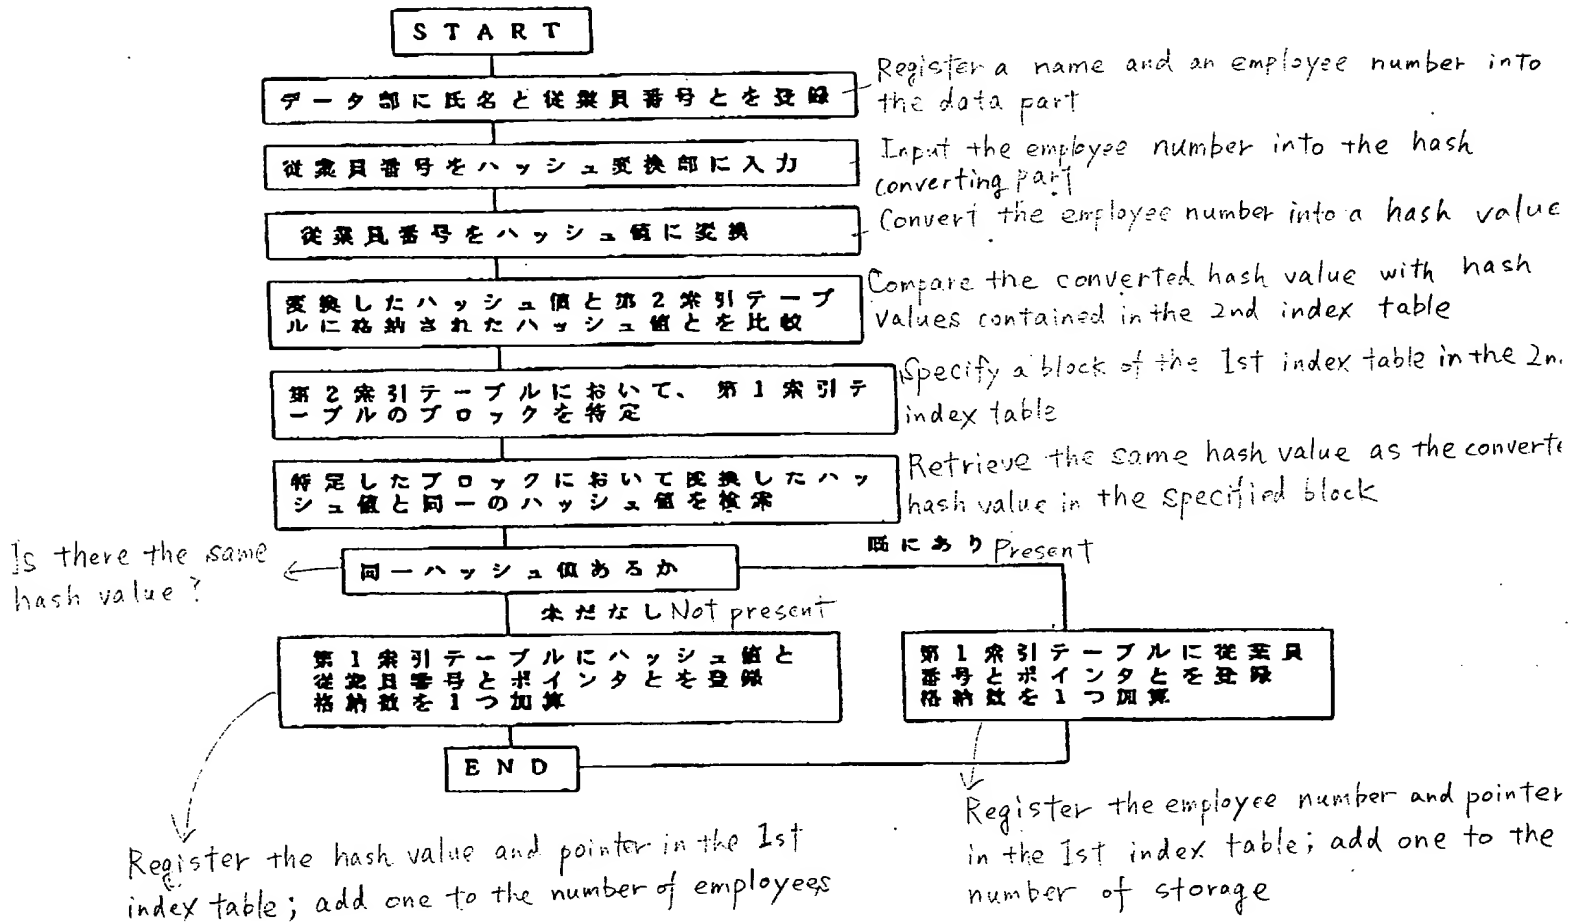 START
データ部に氏名と従業員番号とを登録
Register a name and an employee number into
the data part
従業員番号をハッシュ変換部に入力
Input the employee number into the hash
converting part
従業員番号をハッシュ値に変換
Convert the employee number into a hash value
変換したハッシュ値と第2索引テーブ
ルに格納されたハッシュ値とを比較
Compare the converted hash value with hash
values contained in the 2nd index table
第2索引テーブルにおいて、第1索引テ
ーブルのブロックを特定
Specify a block of the 1st index table in the 2n
index table
特定したブロックにおいて変換したハッ
シュ値と同一のハッシュ値を検索
Retrieve the same hash value as the converte
hash value in the specified block
Is there the same
hash value?
同一ハッシュ値あるか
既にあり Present
未だなし Not present
第1索引テーブルにハッシュ値と
従業員番号とポインタとを登録
格納数を1つ加算
第1索引テーブルに従業員
番号とポインタとを登録
格納数を1つ加算
END
Register the hash value and pointer in the 1st
index table; add one to the number of employees
Register the employee number and pointer
in the 1st index table; add one to the
number of storage